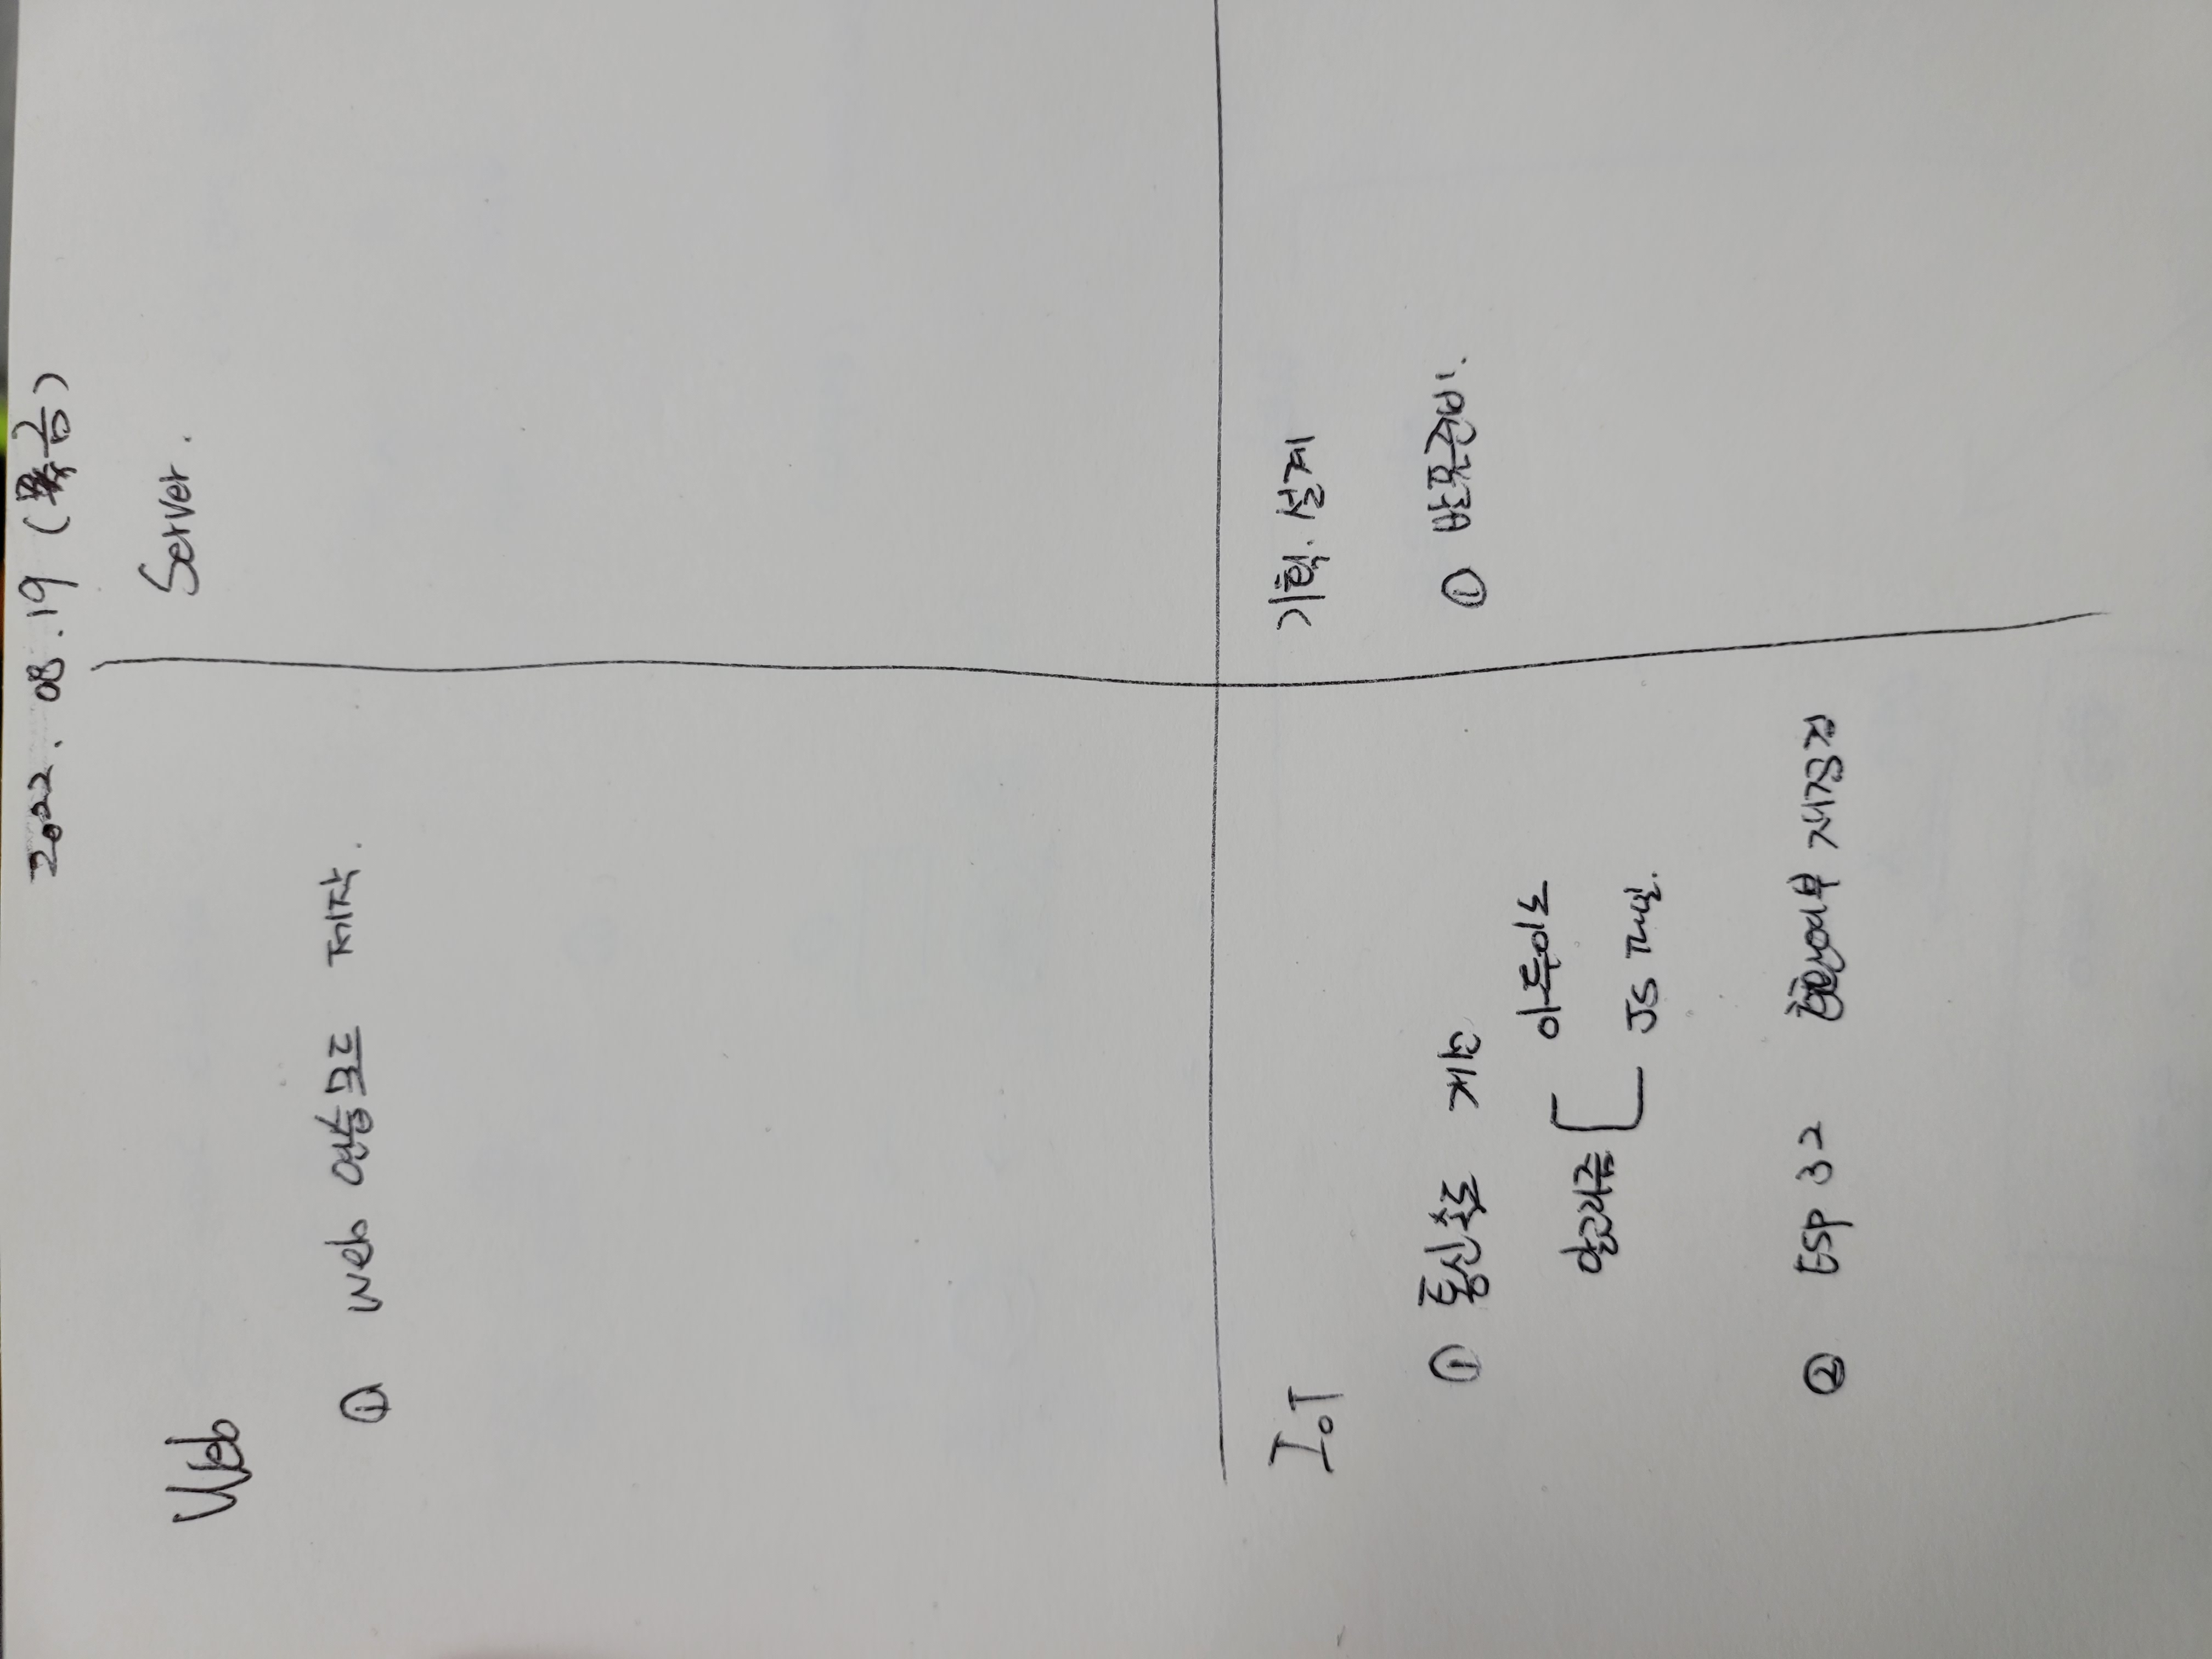 2022. 08. 19 (금)
Web
① Web 연습모드 제작.
Server.
IoT
① 통신속도 개선
알고리즘
아두이노
JS 패널.
② ESP 32 여부 재점검
기획. 설계
① 발표준비.